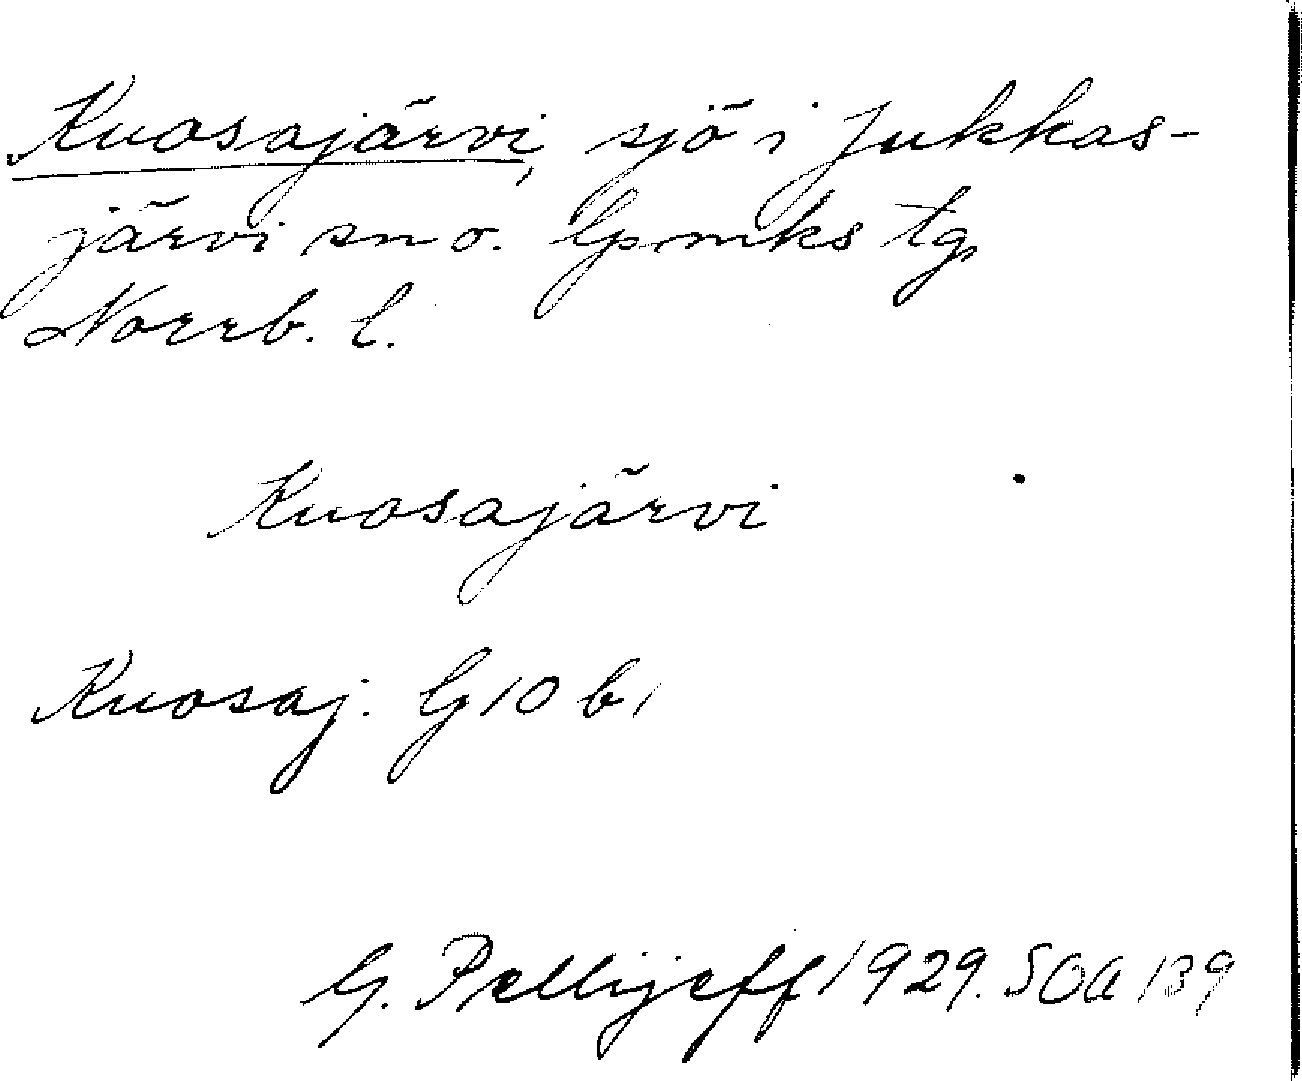 Kuosajärvi, sjö i Jukkas-
järvi sn o. Gp.mks tg,
Norrb. l.
Kuosajärvi
Kuosaj. G 10 b 1
G. Pellijeff 1929. SOA 139